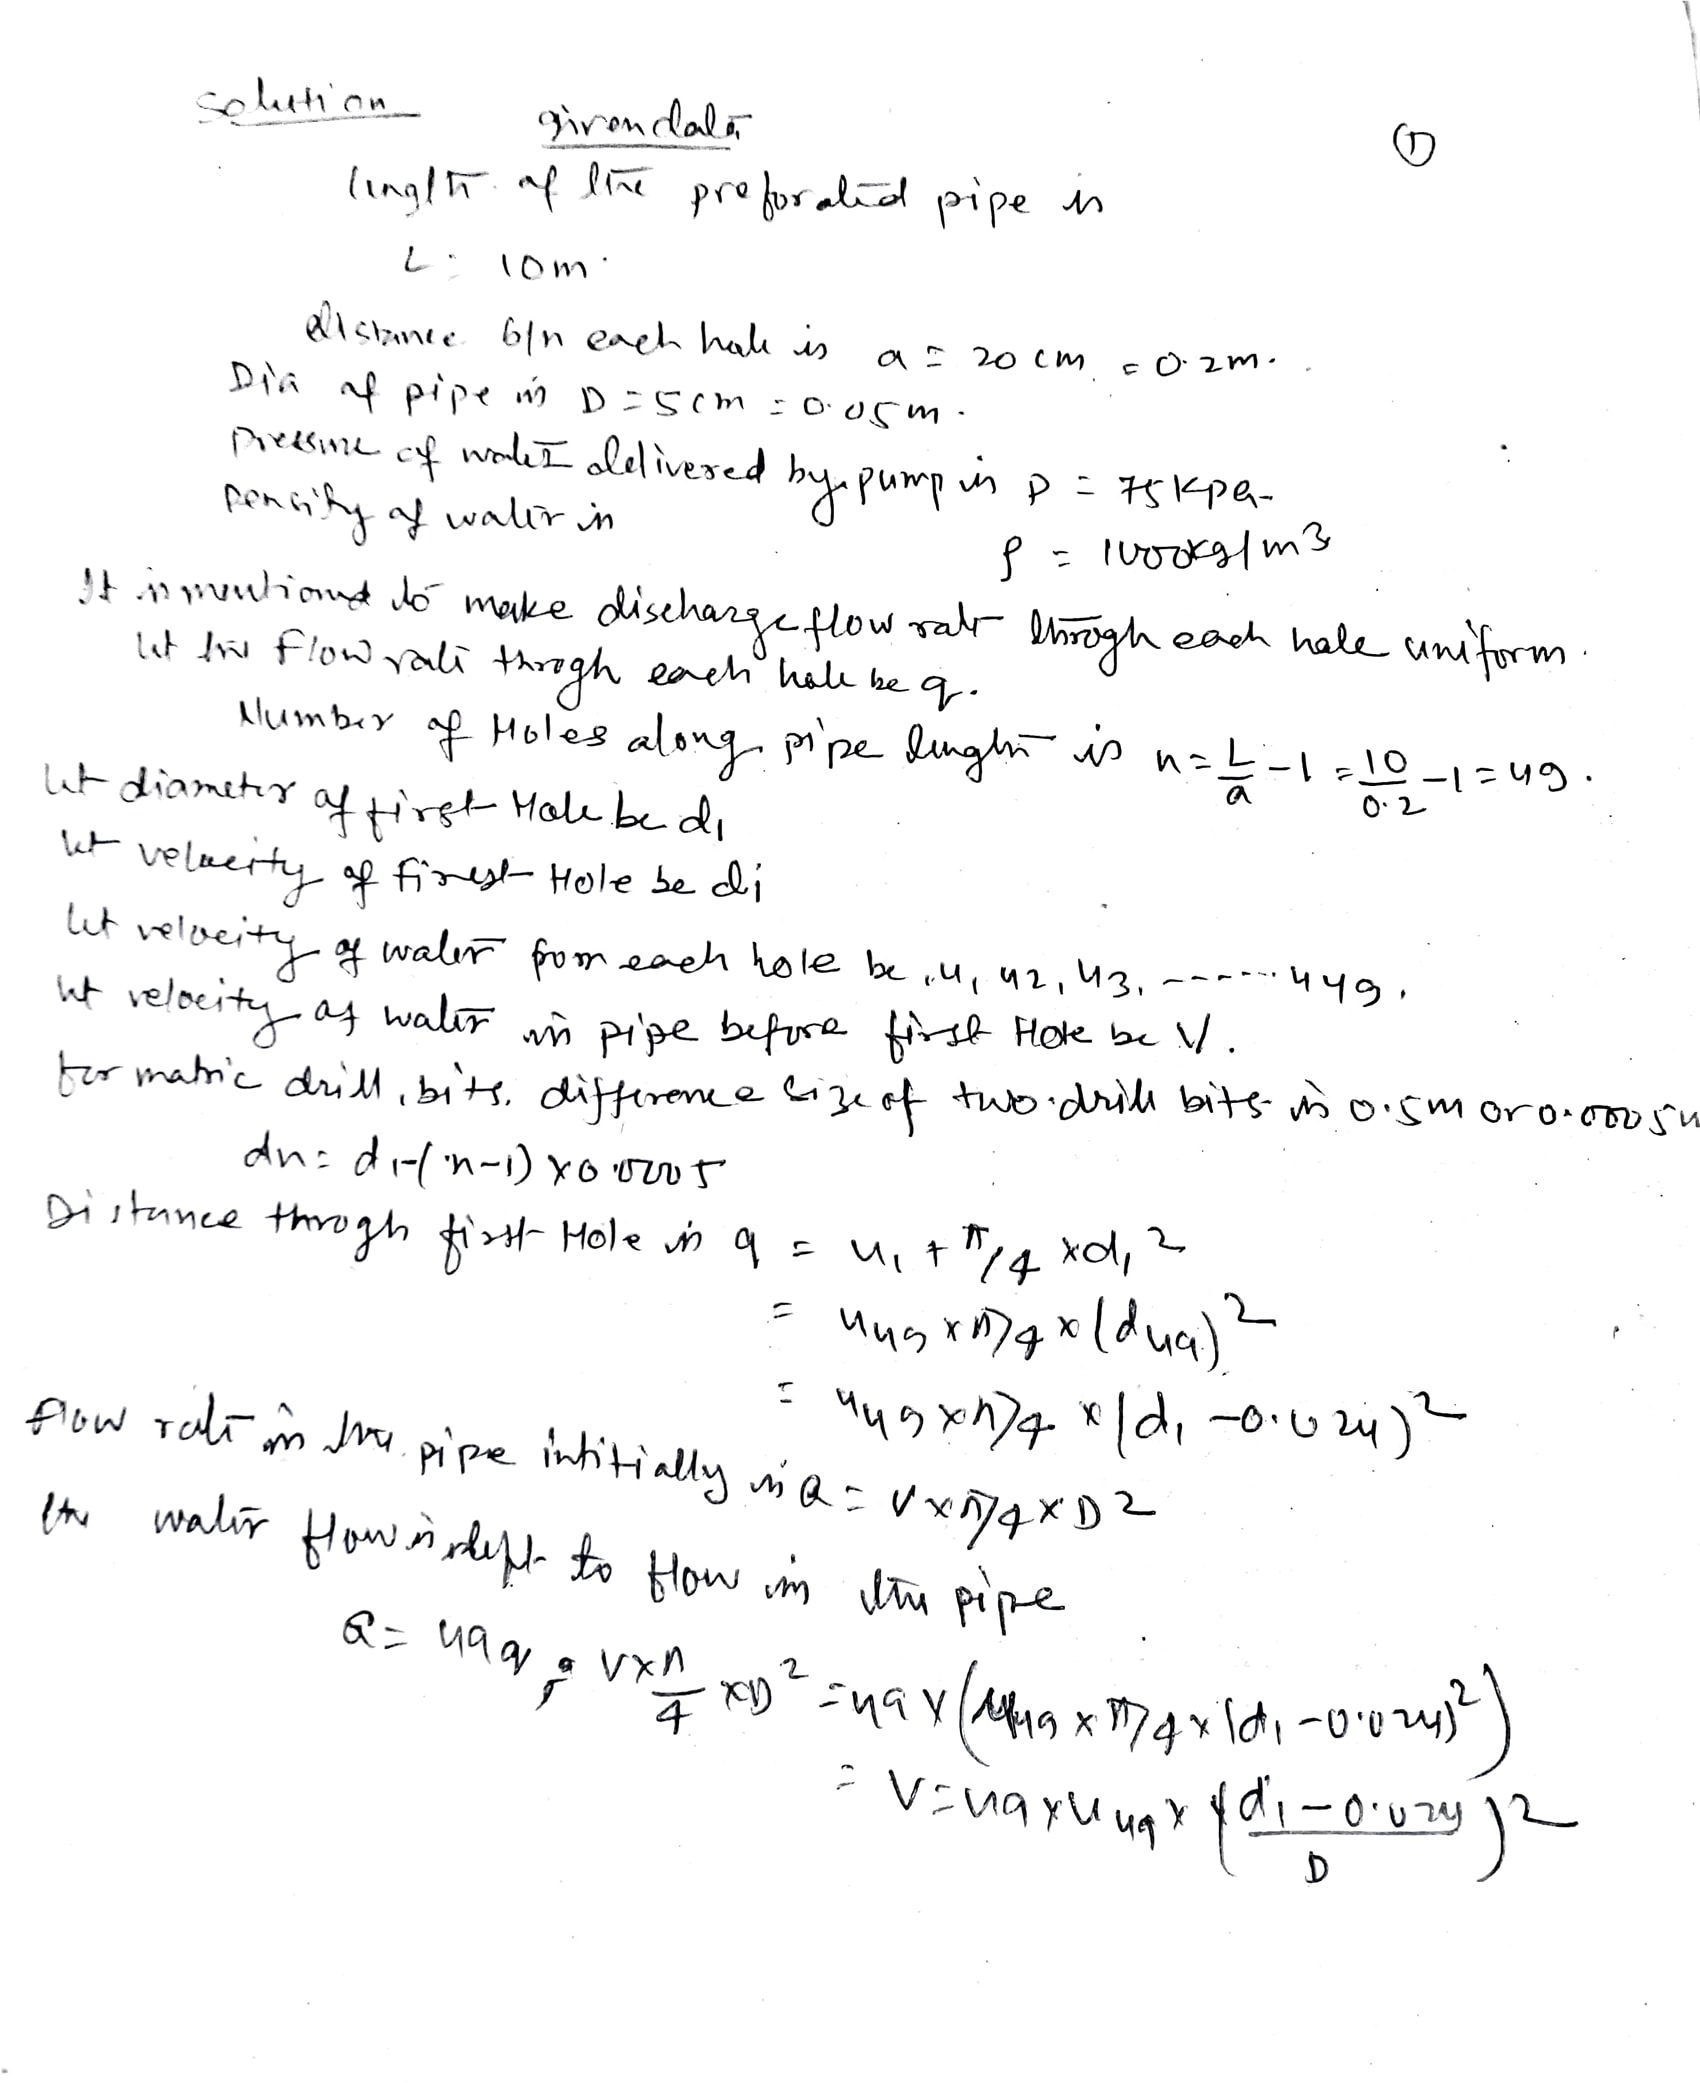 solution
given data
①
length of the preforated pipe is
L = 10m.
distance b/n each hole is a = 20 cm = 0.2m.
Dia of pipe is D = 5cm = 0.05m.
pressure of water delivered by pump is P = 75 Kpa
Density of water is
ρ = 1000kg/m3
It is mentioned to make discharge flow rate through each hole uniform.
let the flow rate throgh each hole be q.
Number of Holes along pipe lenght is n = L/a - 1 = 10/0.2 - 1 = 49.
let diameter of first Hole be d1
let velocity of first Hole be di
let velocity of water from each hole be u1, u2, u3, ------ u49.
let velocity of water in pipe before first Hole be V.
for matric drill bits, difference size of two drill bits is 0.5m or 0.0005
dn = d1-(n-1) x 0.0005
Distance throgh first Hole is q = u1 + π/4 x d1 2
= u49 x π/4 x (d49)2
= u49 x π/4 x (d1 - 0.024)2
flow rate in the pipe intitially is Q = V x π/4 x D2
the water flow is left to flow in the pipe
Q = 49q ; V x π/4 x D2 = 49 x (u49 x π/4 x (d1 - 0.024)2)
= V = 49 x u49 x (d1 - 0.024 / D)2